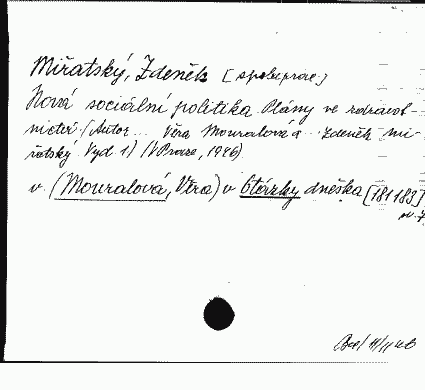 Miřatský, Zdeněk [spoluprac.]
Nová sociální politika Plány ve zdravot-
nictví (Autor... Věra Mouralová a Zdeněk Mi-
řatský Vyd 1) (V Praze, 1946)
v (Mouralová, Věra) v Otázky dneška [181183]